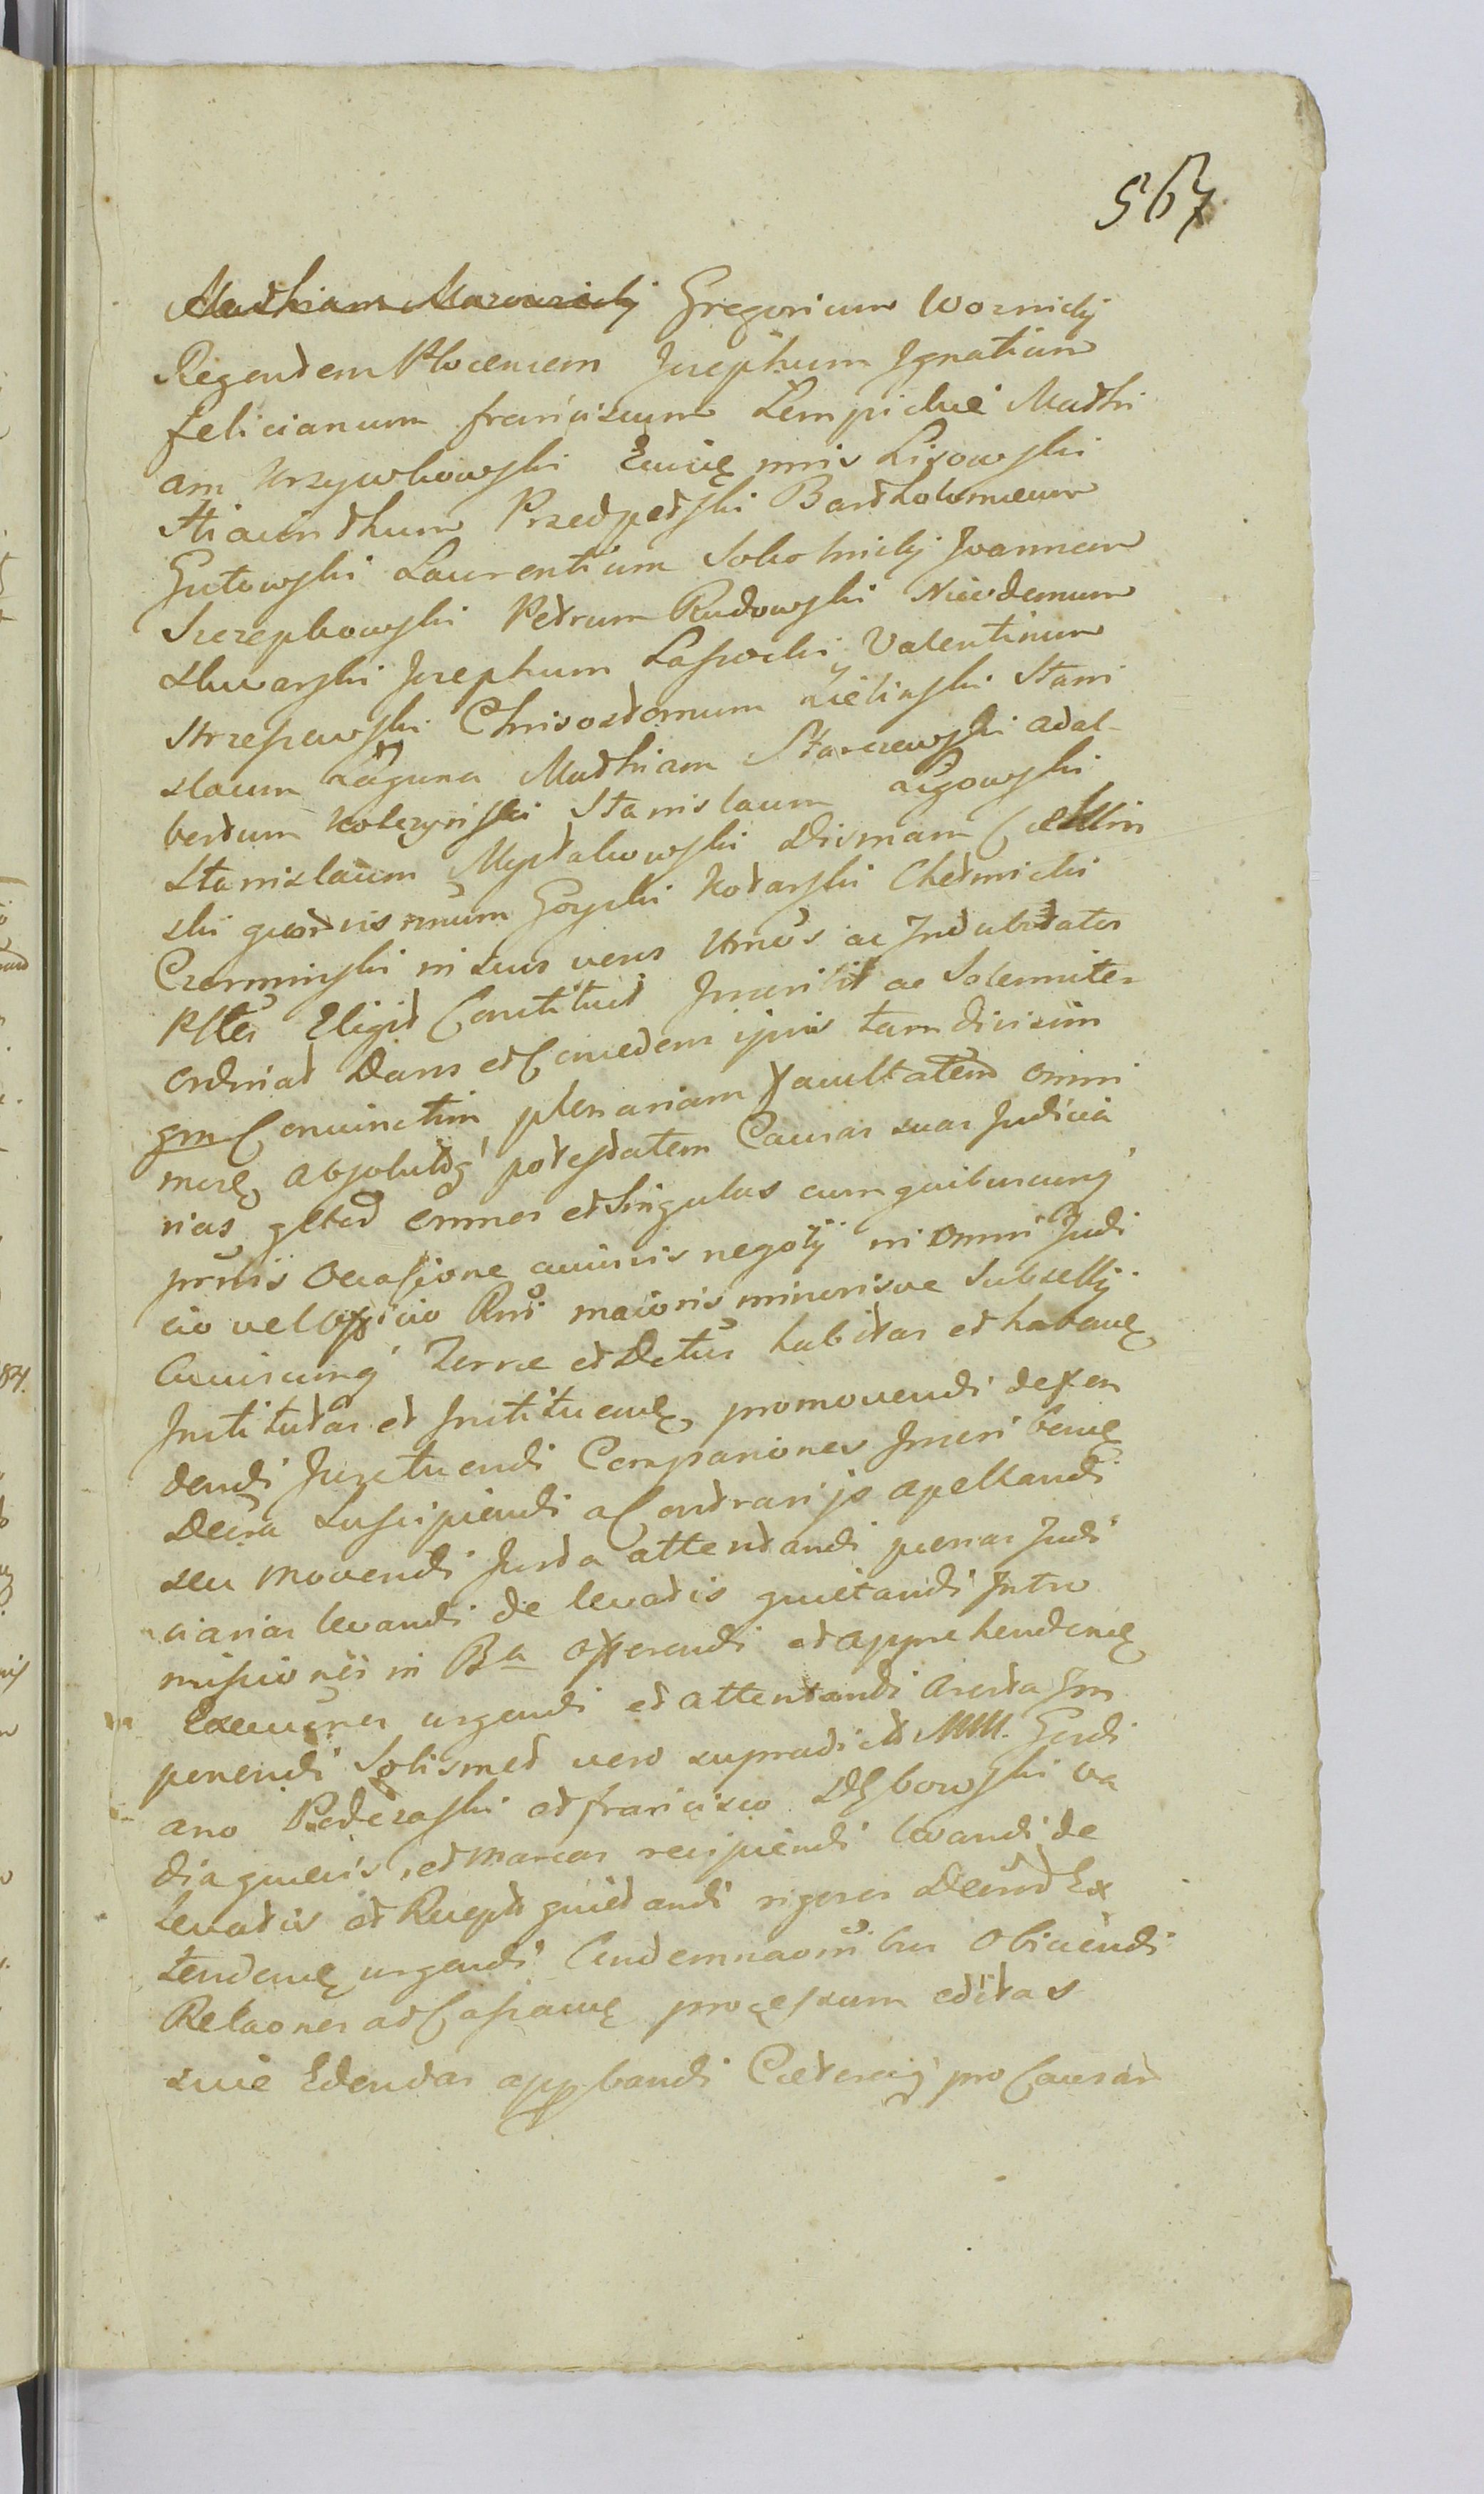 567
Mathiam Mazowiecki Gregorium Woznicki
Regentem Plocensem Josephum Ignatium
felicianum franciscum Lempickie Mathi
am Krzywkowski Lisowski
Hiacinthum Przedpełski Bartholomeum
Gutowski Laurentium Sobotnicki Joannem
Szczepkowski Petrum Rudowski Nicodemum
Josephum Lasocki Valentinum
Strzeszewski Chrisostomum Zieliński Stani
slaum Łaguna Mathiam Starczewski Adal-
bertum Kolczyński Stanislaum Ligowski
Stanislaum Mystakowski Dismam
ski Gorski Kotarski Chełmicki
Czerminski in suos veros ac Indubitatos
Pltes Eligit Constituit Inscribit ac Solenniter
ordinat Dans et Concedens ipsis tam divisim
qm Conjunctim plenariam facultatem omni
mosq absolutaq' potestatem Causas suas Judicia
rias gltes omnes et Singulas cum quibuscunq'
prsnis Occasione cuiusvis negotij in omni Judi
cio vel officio Rni maioris minorisve Subsellij
Cuiuscunq' Terrae et Dctus habitas et habenc
Institutas et Instituenc promovendi defen
dendi Comparitiones Inscribenc
Decra Suscipiendi a Contrarijs apellandi
seu movendi Justa attentandi poenas Judi
ciarias levandi de levatis quietandi Intro
missiones in Ba offerendi et apprehendenc
Execuones urgendi et attentandi Aresta Im
ponendi Solismet vero supradictis MM. Gordi
ano Podczaski et francisco Dębowski va
dia et marcas recipiendi levandi de
levatis et Recept quietandi rigores Decret Ex
tendenc urgendi Condemnaonibus Obiiciendi
Relaones ad Cassanc processum editas
sive Edendas appbandi Caeteraq' pro Causar